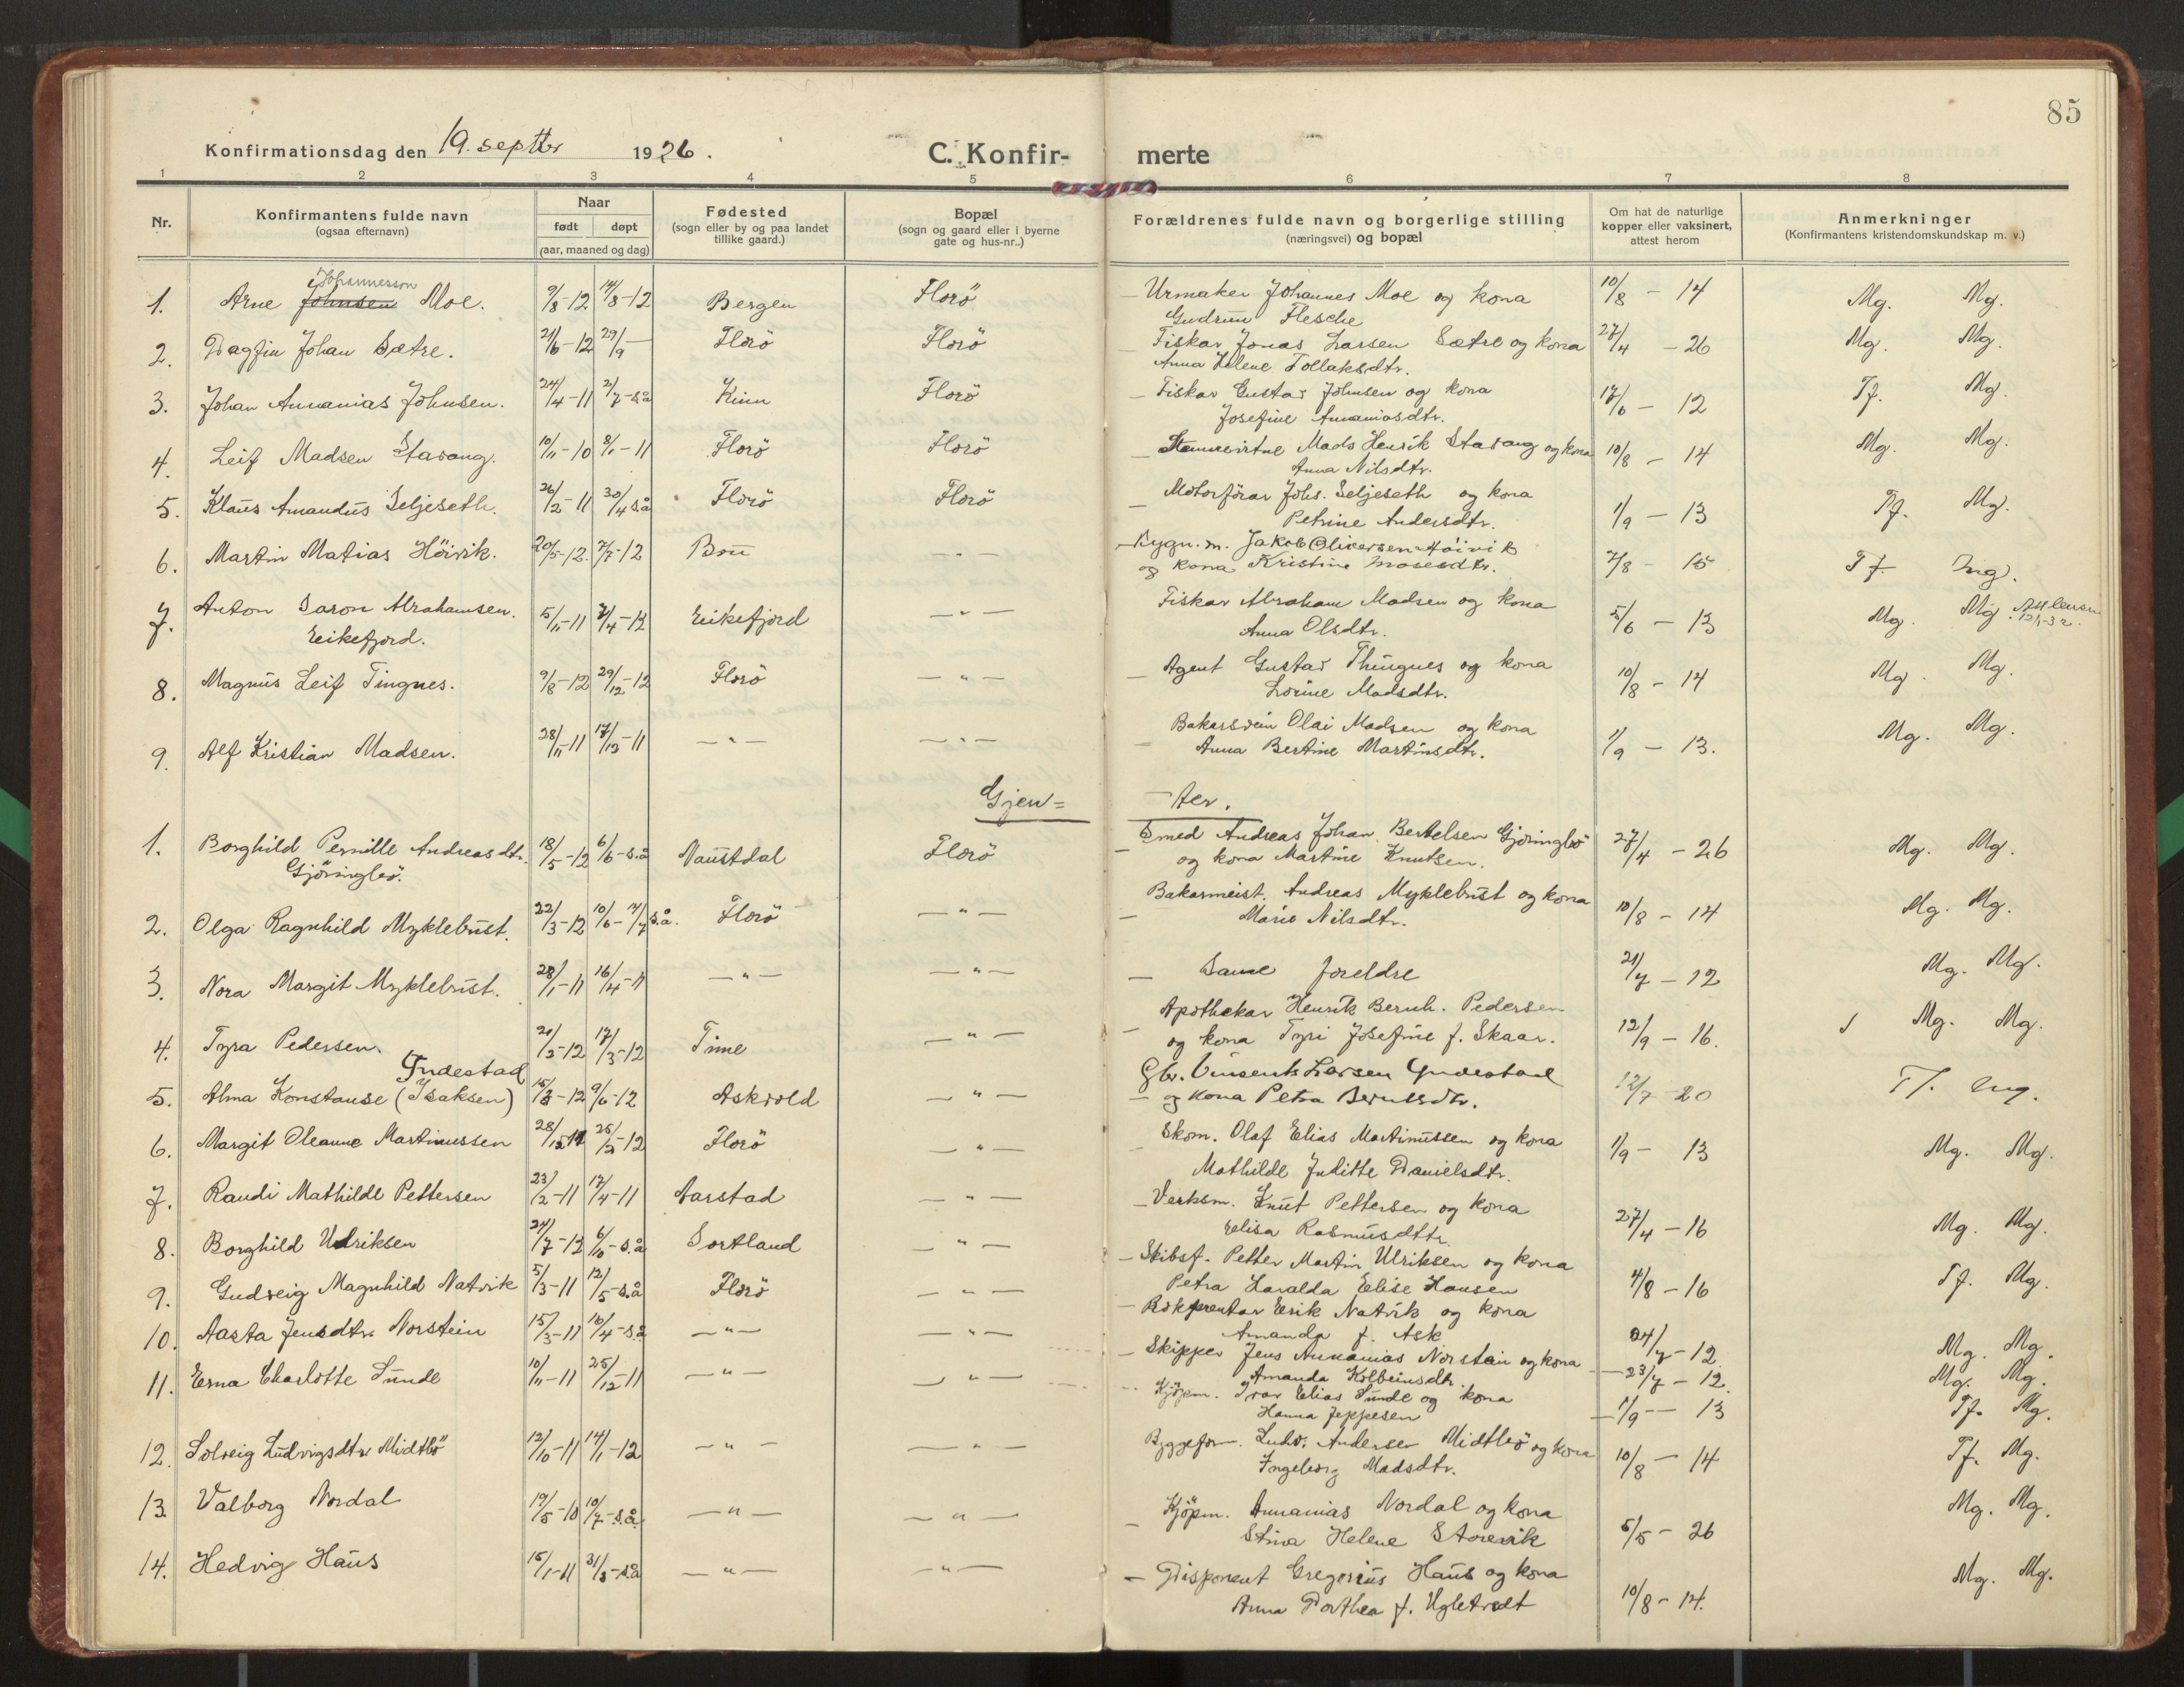 85
Konfirmationsdag den 19. septbr 1926.
C. Konfir- merte
1 2 3 4 5 6 7 8
Nr.
Konfirmantens fulde navn
(ogsaa efternavn)
Naar
født døpt
(aar, maaned og dag)
Fødested
(sogn eller by og paa landet
tillike gaard.)
Bopæl
(sogn og gaard eller i byerne
gate og hus-nr..)
Forældrenes fulde navn og borgerlige stilling
(næringsvei) og bopæl
Om hat de naturlige
kopper eller vaksinert,
attest herom
Anmerkninger
(Konfirmantens kristendomskundskap m. v.)
Johannesson
1. Arne Johnsen Moe. 9/8-12. 14/8-12 Bergen Florö — Urmaker Johannes Moe og kona 10/8 - 14 Mg. Mg.
Gudrun Flesche
2. Dagfin Johan Sætre. 21/6-12 29/9 — Florö Florö — Fiskar Jonas Larsen Sætre og kona 27/4 - 26 Mg. Mg.
Anna Helene Tollaksdtr.
3. Johan Annanias Johnsen. 24/4-11 2/7-s.å Kinn Florö — Fiskar Gustav Johnsen og kona 17/6 - 12 Tf. Mg.
Josefine Annaniasdtr.
4. Leif Madsen Stavang. 10/11-10 8/1-11 Florö Florö — Mads Henrik Stavang og kona 10/8 - 14 Mg. Mg.
Anna Nilsdtr.
5. Klaus Amandus Seljeseth. 26/2-11 30/4 s.å Florö Florö — Motorförar Johs. Seljeseth og kona 1/9 - 13 Tf. Mg.
Petrine Andersdtr.
6. Martin Matias Höivik. 20/5-12. 7/7-12 Bru — " — — Bygn. m. Jakob Oliversen Höivik 7/8 - 15 Tf Mg.
og kona Kristine Mosesdtr.
7. Anton Saron Abrahamsen. 5/11-11 7/4-12 Eikefjord — " — Fiskar Abraham Madsen og kona 5/6 - 13 Mg. Mg.
Eikefjord. Anna Olsdtr.
8. Magnus Leif Tingnes. 9/8-12 29/12-12 Florö — " — — Agent Gustav Thingnes og kona 10/8 - 14 Mg. Mg.
Lovine Madsdtr.
9. Alf Kristian Madsen. 28/11-11 17/12-11 — " — — " — — Bakarsvein Olai Madsen og kona 1/9 - 13. Mg. Mg.
Anna Bertine Martinsdtr.
Gjen= -ter.
1. Borghild Pernille Andreasdtr. 18/5-12 6/6-s.å Naustdal Florö — Smed Andreas Johan Bertelsen Gjöringbö 27/4 - 26 Mg. Mg.
Gjöringbö. og kona Martine Knutsen.
2. Olga Ragnhild Myklebust. 22/3-12 10/6-14/7 s.å. Florö — " — — Bakarmeist. Andreas Myklebust og kona 10/8 - 14 Mg. Mg.
Marie Nilsdtr.
3. Nora Margit Myklebust. 28/1-11 16/4-11 — " — — " — — Same foreldre 21/7 - 12 Mg. Mg.
4. Tyra Pedersen. 21/2-12 17/3-12 Time — " — — Apothekar Henrik Bernh. Pedersen 12/9 - 16. Mg. Mg.
og kona Tyri Josefine f. Skaar.
Yndestad
5. Alma Konstanse (Isaksen) 15/3-12 9/6-12 Askvold — " — — Gbr. Vinsents Larsen Yndestad 12/7 - 20 Tf. Mg.
og kona Petra Berntsdtr.
6. Margit Oleanne Martinussen 28/12-11 25/2-12 Florö — " — — Skom. Olaf Elias Martinussen og kona 1/9 - 13 Mg. Mg.
Mathilde Juditte Danielsdtr.
7. Randi Mathilde Pettersen 23/2-11 17/4-11 Aarstad — " — — Verksm. Knut Pettersen og kona 27/4 - 16 Mg. Mg.
Elisa Rasmusdtr.
8. Borghild Ulriksen 24/7-12 6/10-s.å Sortland — " — — Skibsf. Petter Martin Ulriksen og kona 4/8 - 16 Tf. Mg.
Petra Haralda Elise Hansen
9. Gudveig Magnhild Natvik 5/3-11 12/5-s.å Florö — " — — Bokprentar Eirik Natvik og kona 24/7 - 12 Mg. Mg.
Amanda f. Ask
10. Aasta Jensdtr. Norstein 15/3-11 16/4-s.å — " — — " — — Skipper Jens Annanias Norstein og kona 23/7 - 12. Mg. Mg.
Amanda Kolbeinsdtr.
11. Erna Charlotte Sunde 10/11-11 25/12-11 — " — — " — Kjöpm. Ivar Elias Sunde og kona 1/9 - 13 Tf. Mg.
Hanna Jeppesen
12. Solveig Ludvigsdtr. Midtbö 12/10-11 14/1-12 — " — — " — Byggeform. Ludv. Andersen Midtbö og kona 10/8 - 14 Tf. Mg.
Ingeborg Madsdtr.
13. Valborg Nordal 19/5-10 10/7-s.å. — " — — " — — Kjöpm. Annanias Nordal og kona 5/5 - 26 Mg. Mg.
Stina Helene Storevik
14. Hedvig Haus 15/1-11 31/3-s.å — " — — " — — Disponent Gregorius Haus og kona 10/8 - 14. Mg. Mg.
Anna Dorthea f. Ugletvedt